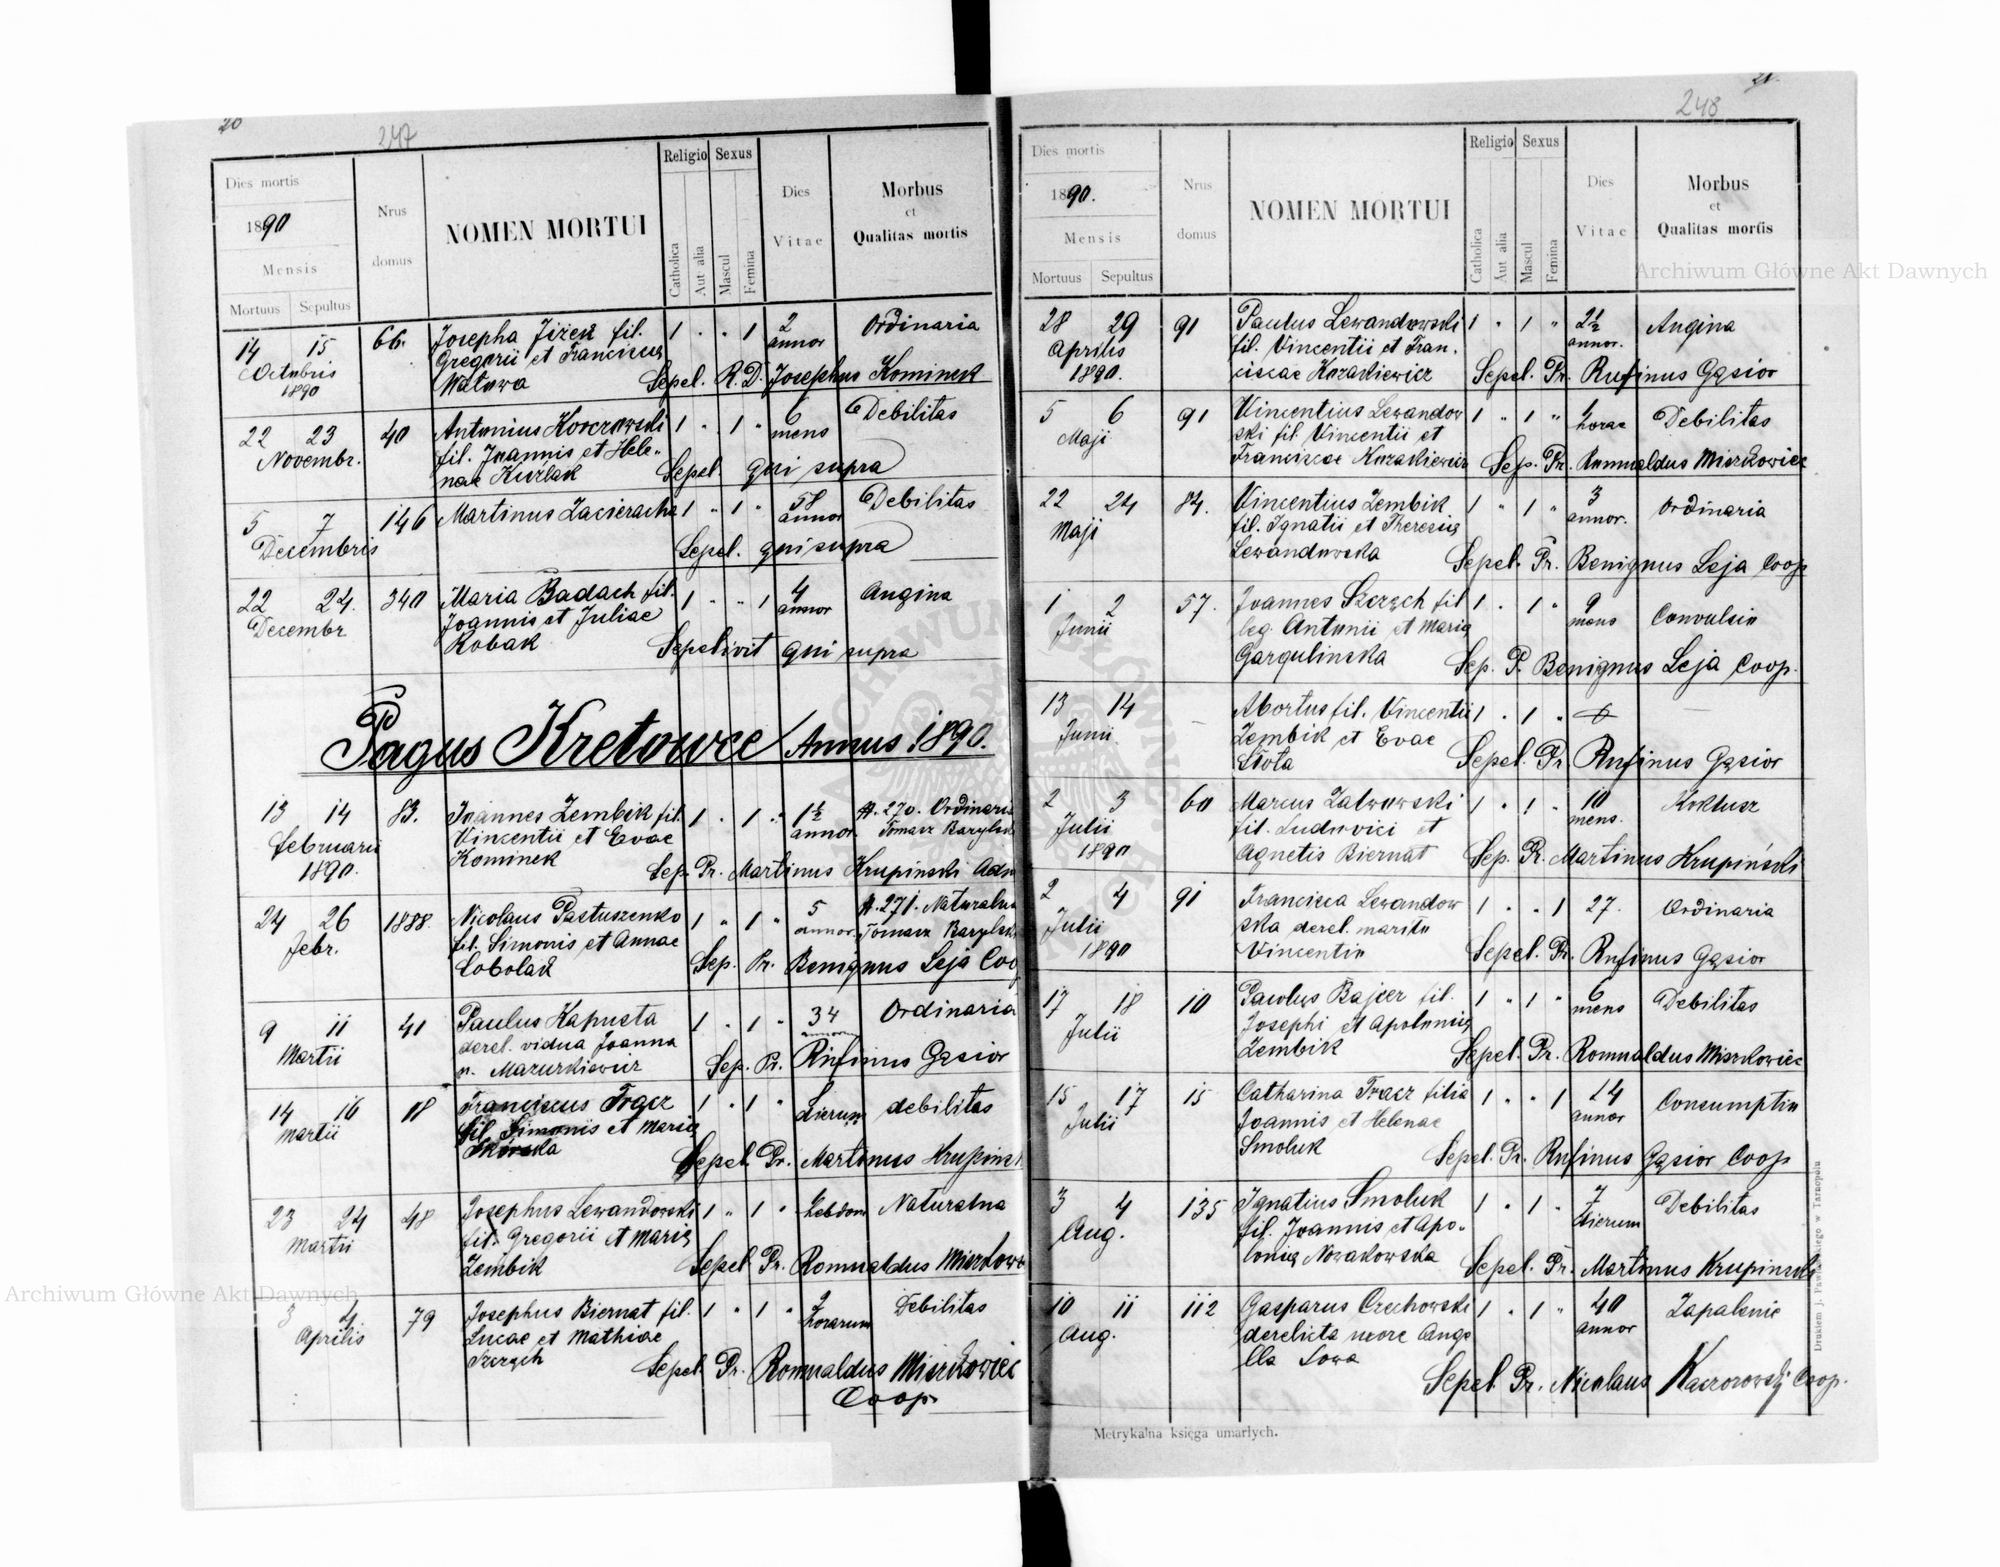 20
247
Dies mortis
1890
Mensis
Mortuus Sepultus
Nrus
domus
NOMEN MORTUI
Religio Sexus
Catholica
Aut alia
Mascul
Femina
Dies
Vitae
Morbus
et
Qualitas mortis
14 15 66. Josepha Jizek fil. 1 " " 1 2 Ordinaria
Octobris Gregorii et Franciscae annor
1890 Watowa Sepel. R. D. Josephus Kominek
22 23 40 Antonius 1 " 1 " 6 Debilitas
Novembr. fil. Joannis et Hele- mens
nae Kurlak Sepel. qui supra
5 7 146 Martinus Zacieracha 1 " 1 " 58 Debilitas
Decembris annor
Sepel. qui supra
22 24. 340 Maria Badach fil. 1 " " 1 4 Angina
Decembr Joannis et Juliae annor
Robak Sepelivit qui supra
Pagus Kretowce Annus 1890.
13 14 83. Joannes Zembik fil. 1 " 1 " 1½ №. 270. Ordinaria
Februarii Vincentii et Evae annor. Tomasz
1890. Kominek Sep. Pr. Martinus Krupinski Adm
24 26 1888. Nicolaus Pastuszenko 1 " 1 " 5 №. 271. Naturalna
Febr. fil. Simonis et Annae annor. Tomasz
Sobolak Sep. Pr. Benignus Leja Coo
9 11 41 Paulus Kapusta 1 " 1 " 34 Ordinaria
Martii derel. vidua Joanna annorum
n. Mazurkiewicz Sep. Pr. Rufinus Gąsior
14 16 18 Franciscus Tracz 1 " 1 " dierum debilitas
Martii fil. Simonis et Mariae
Sikorska Sepel. Pr. Martinus Krupinsk
23 24 48 Josephus Lewandowski 1 " 1 " hebdom Naturalna
Martii fil. Gregorii et Mariae
Zembik Sepel. Pr. Romualdus Miszkowi
3 4 79 Josephus Biernat fil. 1 " 1 " 2 Debilitas
Aprilis Lucae et Mathiae horarum
Szczęch Sepel. Pr. Romualdus Miszkowiec
Coop.
21.
248
Dies mortis
1890.
Mensis
Mortuus Sepultus
Nrus
domus
NOMEN MORTUI
Religio Sexus
Catholica
Aut alia
Mascul
Femina
Dies
Vitae
Morbus
et
Qualitas mortis
28 29 91 Paulus Lewandowski 1 " 1 " 2½ Angina
Aprilis fil. Vincentii et Fran- annor.
1890. ciscae Kozakiewicz Sepel. Pr. Rufinus Gąsior
5 6 91 Vincentius Lewandow 1 " 1 " Debilitas
Maji ski fil. Vincentii et horae
Franciscae Kozakiewicz Sep. Pr. Romualdus Miszkowiec
22 24 84. Vincentius Zembik 1 " 1 " 3 Ordinaria
Maji fil. Ignatii et Theresiae annor.
Lewandowska Sepel. Pr. Benignus Leja Coop
1 2 57. Joannes Szczęch fil 1 " 1 " 9 Convulsio
Junii leg. Antonii et Mariae mens
Gargulinska Sep. P. Benignus Leja Coop.
13 14 – Abortus fil. Vincentii 1 " 1 " –
Junii Zembik et Evae
Słota Sepel. Pr Rufinus Gąsior
2 3 60 Marcus Zatwowski 1 " 1 " 10 Koklusz
Julii fil. Ludovici et mens.
1890 Agnetis Biernat Sep. Pr. Martinus Krupiński
2 4 91 Francisca Lewandow 1 " " 1 27. Ordinaria
Julii ska derel. marito
1890 Vincentio Sepel. Pr. Rufinus Gąsior
17 18 10 Paulus Bajcer fil. 1 " 1 " 6 Debilitas
Julii Josephi et Apoloniae mens
Zembik Sepel. Pr. Romualdus Miszkowiec
15 17 15 Catharina Tracz filia 1 " " 1 24 Consumptio
Julii Joannis et Helenae annor
Smoluk Sepel. Pr. Rufinus Gąsior Coop
3 4 135 Ignatius Smoluk 1 " 1 " 7 Debilitas
Aug. fil. Joannis et Apo- dierum
loniae Nowakowska Sepel. Pr. Martinus Krupinski
10 11 112 Gasparus Czechowski 1 " 1 " 40 Zapalenie
Aug. derelicta uxore Ange annor
lla Sowa
Sepel. Pr. Nicolaus Kaczorowski Coop.
Metrykalna księga umarłych.
Archiwum Główne Akt Dawnych
Archiwum Główne Akt Dawnych